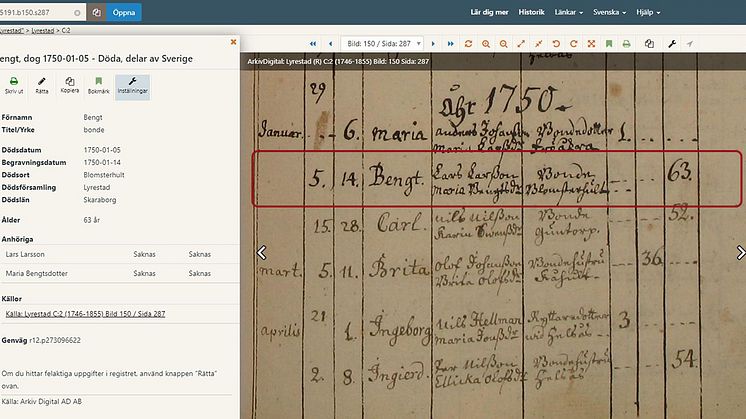 5191.b150.s287
Öppna
Lär dig mer
Historik
Länkar
Svenska
Hjälp
Lyrestad" > Lyrestad > C:2
engt, dog 1750-01-05 - Döda, delar av Sverige
Skriv ut
Rätta
Kopiera
Bokmärk
Inställningar
Förnamn Bengt
Titel/Yrke bonde
Dödsdatum 1750-01-05
Begravningsdatum 1750-01-14
Dödsort Blomsterhult
Dödsförsamling Lyrestad
Dödslän Skaraborg
Ålder 63 år
Anhöriga
Lars Larsson Saknas Saknas
Maria Bengtsdotter Saknas Saknas
Källor
Källa: Lyrestad C:2 (1746-1855) Bild 150 / Sida 287
Genväg r12.p273096622
Om du hittar felaktiga uppgifter i registret, använd knappen "Rätta"
ovan.
Källa: Arkiv Digital AD AB
Bild: 150 / Sida: 287
ArkivDigital: Lyrestad (R) C:2 (1746-1855) Bild: 150 Sida: 287
29
Åhr 1750
Januar. 6. maria Bondedotter 1.
5. 14. Bengt. Lars Larsson Bonde 63.
Maria Bengtsdr Blomsterhult
15. 28. Carl. nils nilsson Bonde 52.
Karin Swensdr Guntorp.
mart. 5. 11. Brita olof Johansson Bondehustru 36
Brita olofsdr
21
aprilis 1. Ingeborg nils Hellman Ryttaredotter 3
maria
2. 8. Ingierd. Per nilsson Bondehustru 54.
Ellicka olofsdr